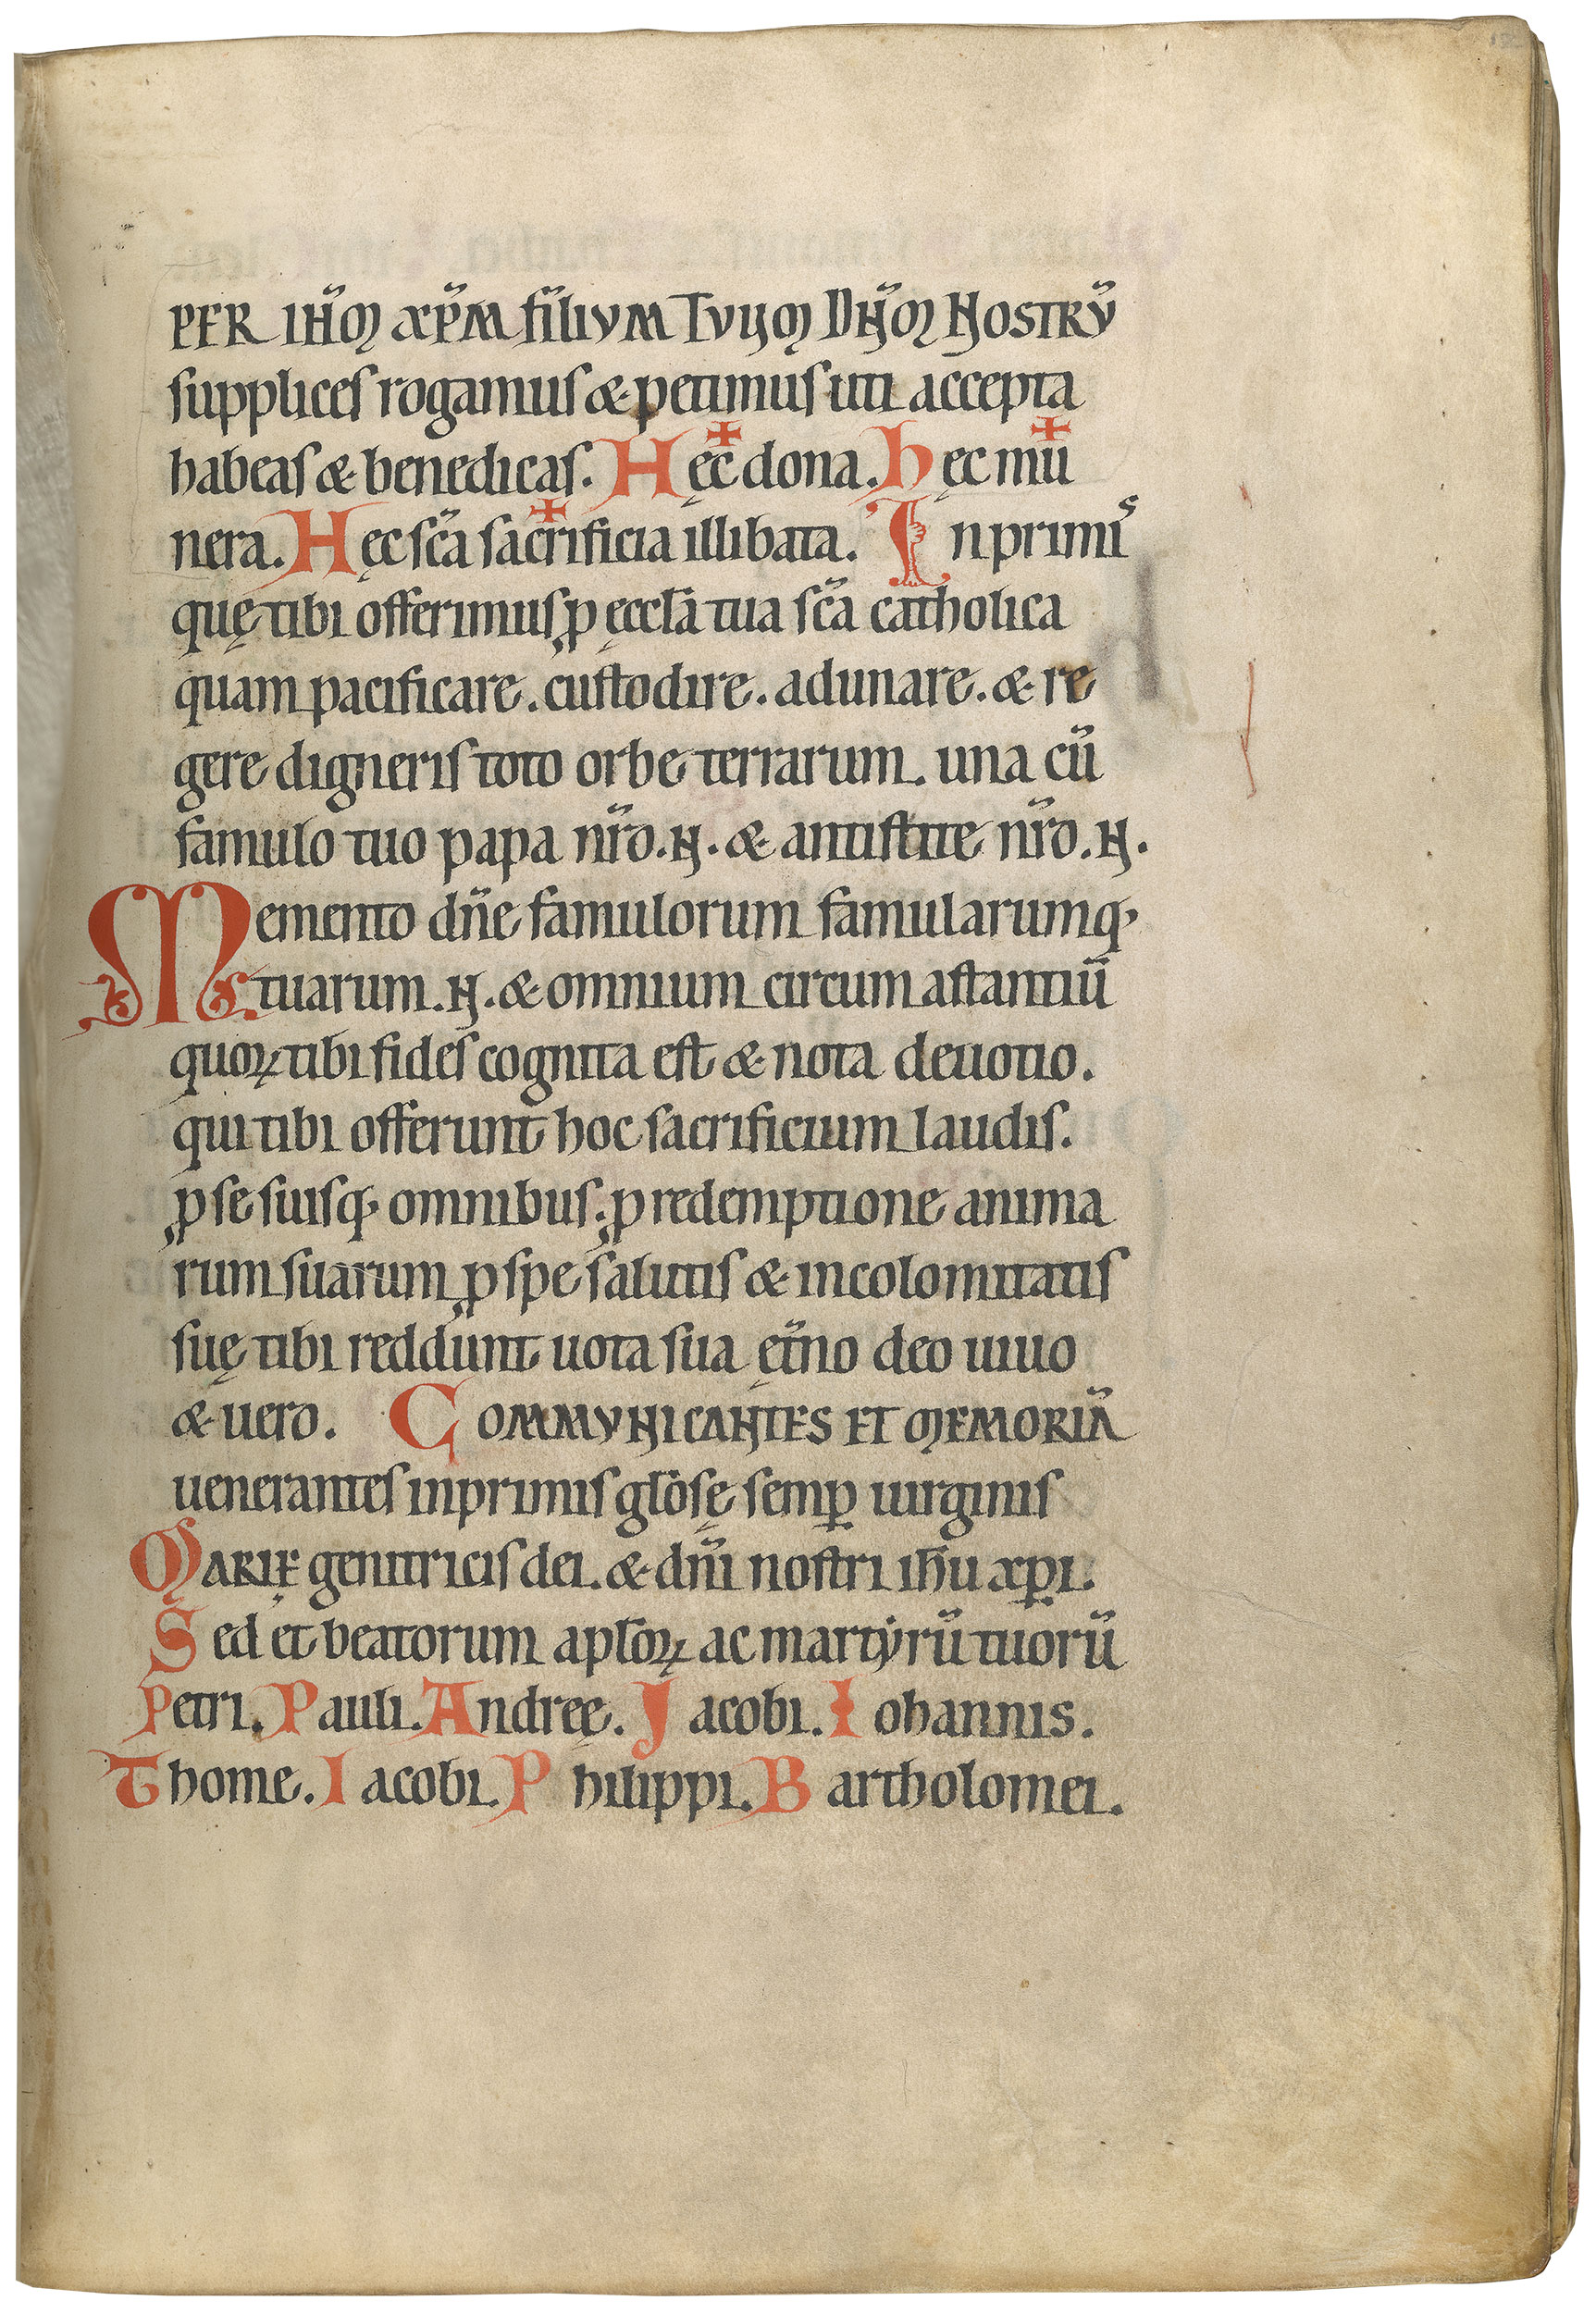 PER IHM̄ XP̄M FILIVM TVVM DHM̄ NOSTRV̄
supplices rogamus & petimus uti accepta
habeas & benedicas. Hęc ✠ dona. hęc mu ✠
nera. Hęc sc̄a sacrificia ✠ illibata. Inprimis
quę tibi offerimus ꝓ ęccl̄a tua sc̄a catholica
quam pacificare. custodire. adunare. & re
gere digneris toto orbe terrarum. una cū
famulo tuo papa nr̄o. N. & antistite nr̄o. N.
Memento dn̄e famulorum famularumq;
tuarum. N. & omnium circum astantiū
quoꝝ tibi fides cognita est & nota deuotio.
qui tibi offerunt hoc sacrificium laudis.
ꝓ se suisq; omnibus. ꝓ redemptione anima
rum suarum ꝓ spe salutis & incolomitatis
suę tibi reddunt uota sua ęt̄no deo uiuo
& uero. COMMVNICANTES ET MEMORIĀ
uenerantes inprimis gl̄osę semꝑ uirginis
MARIĘ genitricis dei. & dn̄i nostri ih̄u xp̄i.
Sed et beatorum apl̄oꝝ ac martẏrū tuorū
Petri. Pauli. Andreę. Jacobi. Iohannis.
Thome. Iacobi. Philippi. Bartholomei.